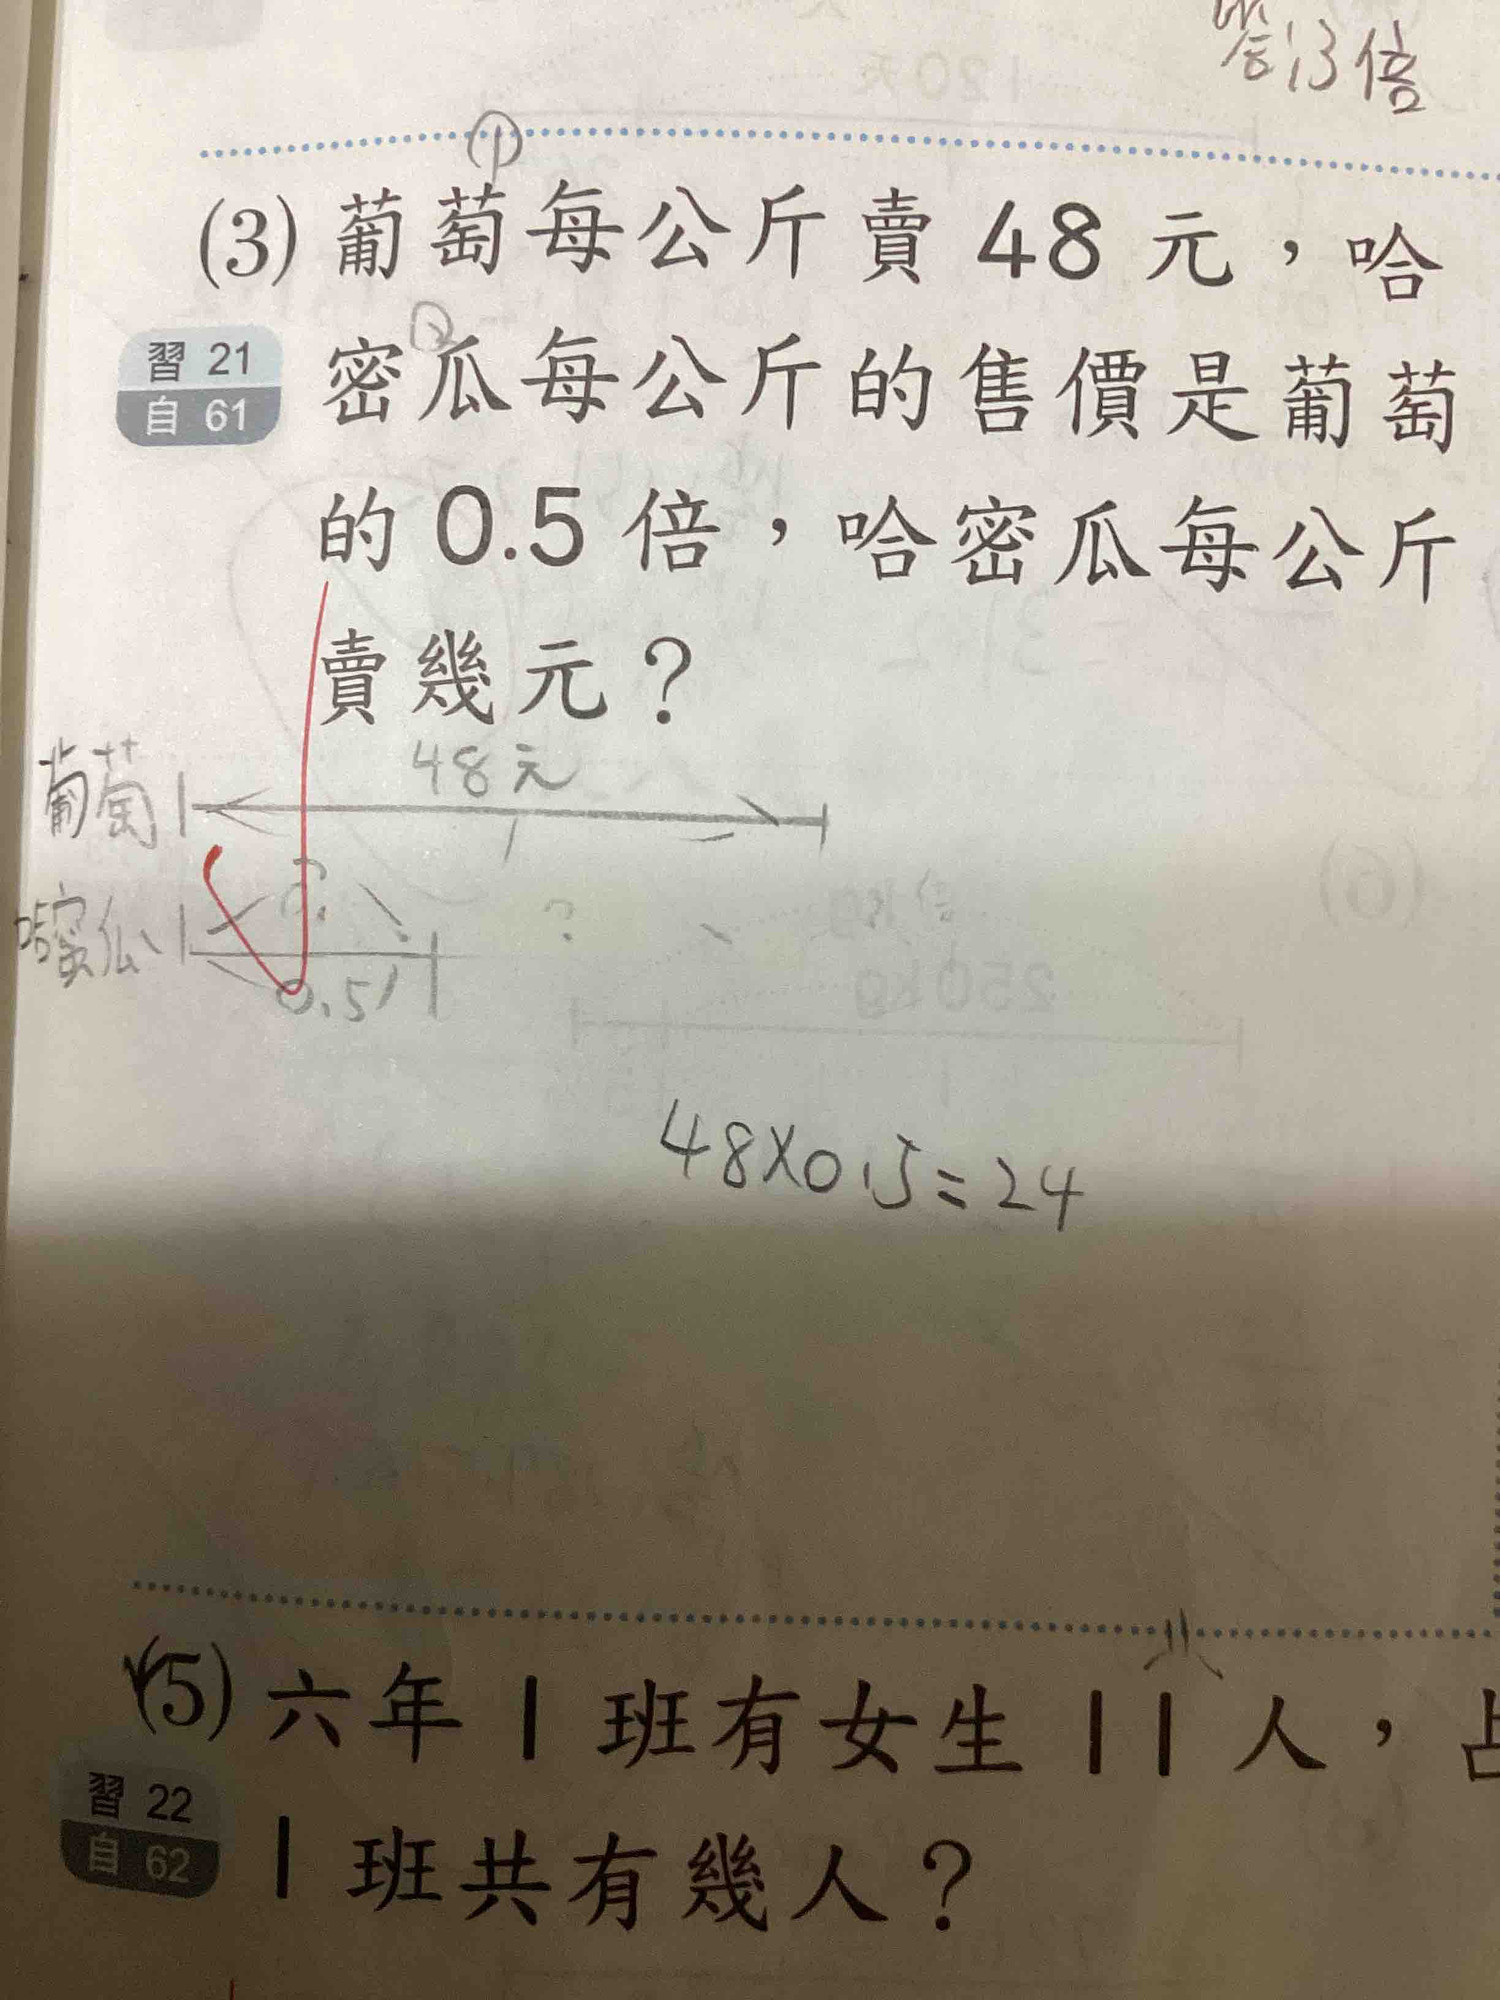 答:1.3倍
①
(3) 葡萄每公斤賣 48 元,哈
習 21
自 61
密瓜每公斤的售價是葡萄
的 0.5 倍,哈密瓜每公斤
賣幾元?
48元
葡萄
1
?
?
哈蜜瓜
0.5
48×0.5=24
(5) 六年 1 班有女生 11 人,占
習 22
自 62
1 班共有幾人?